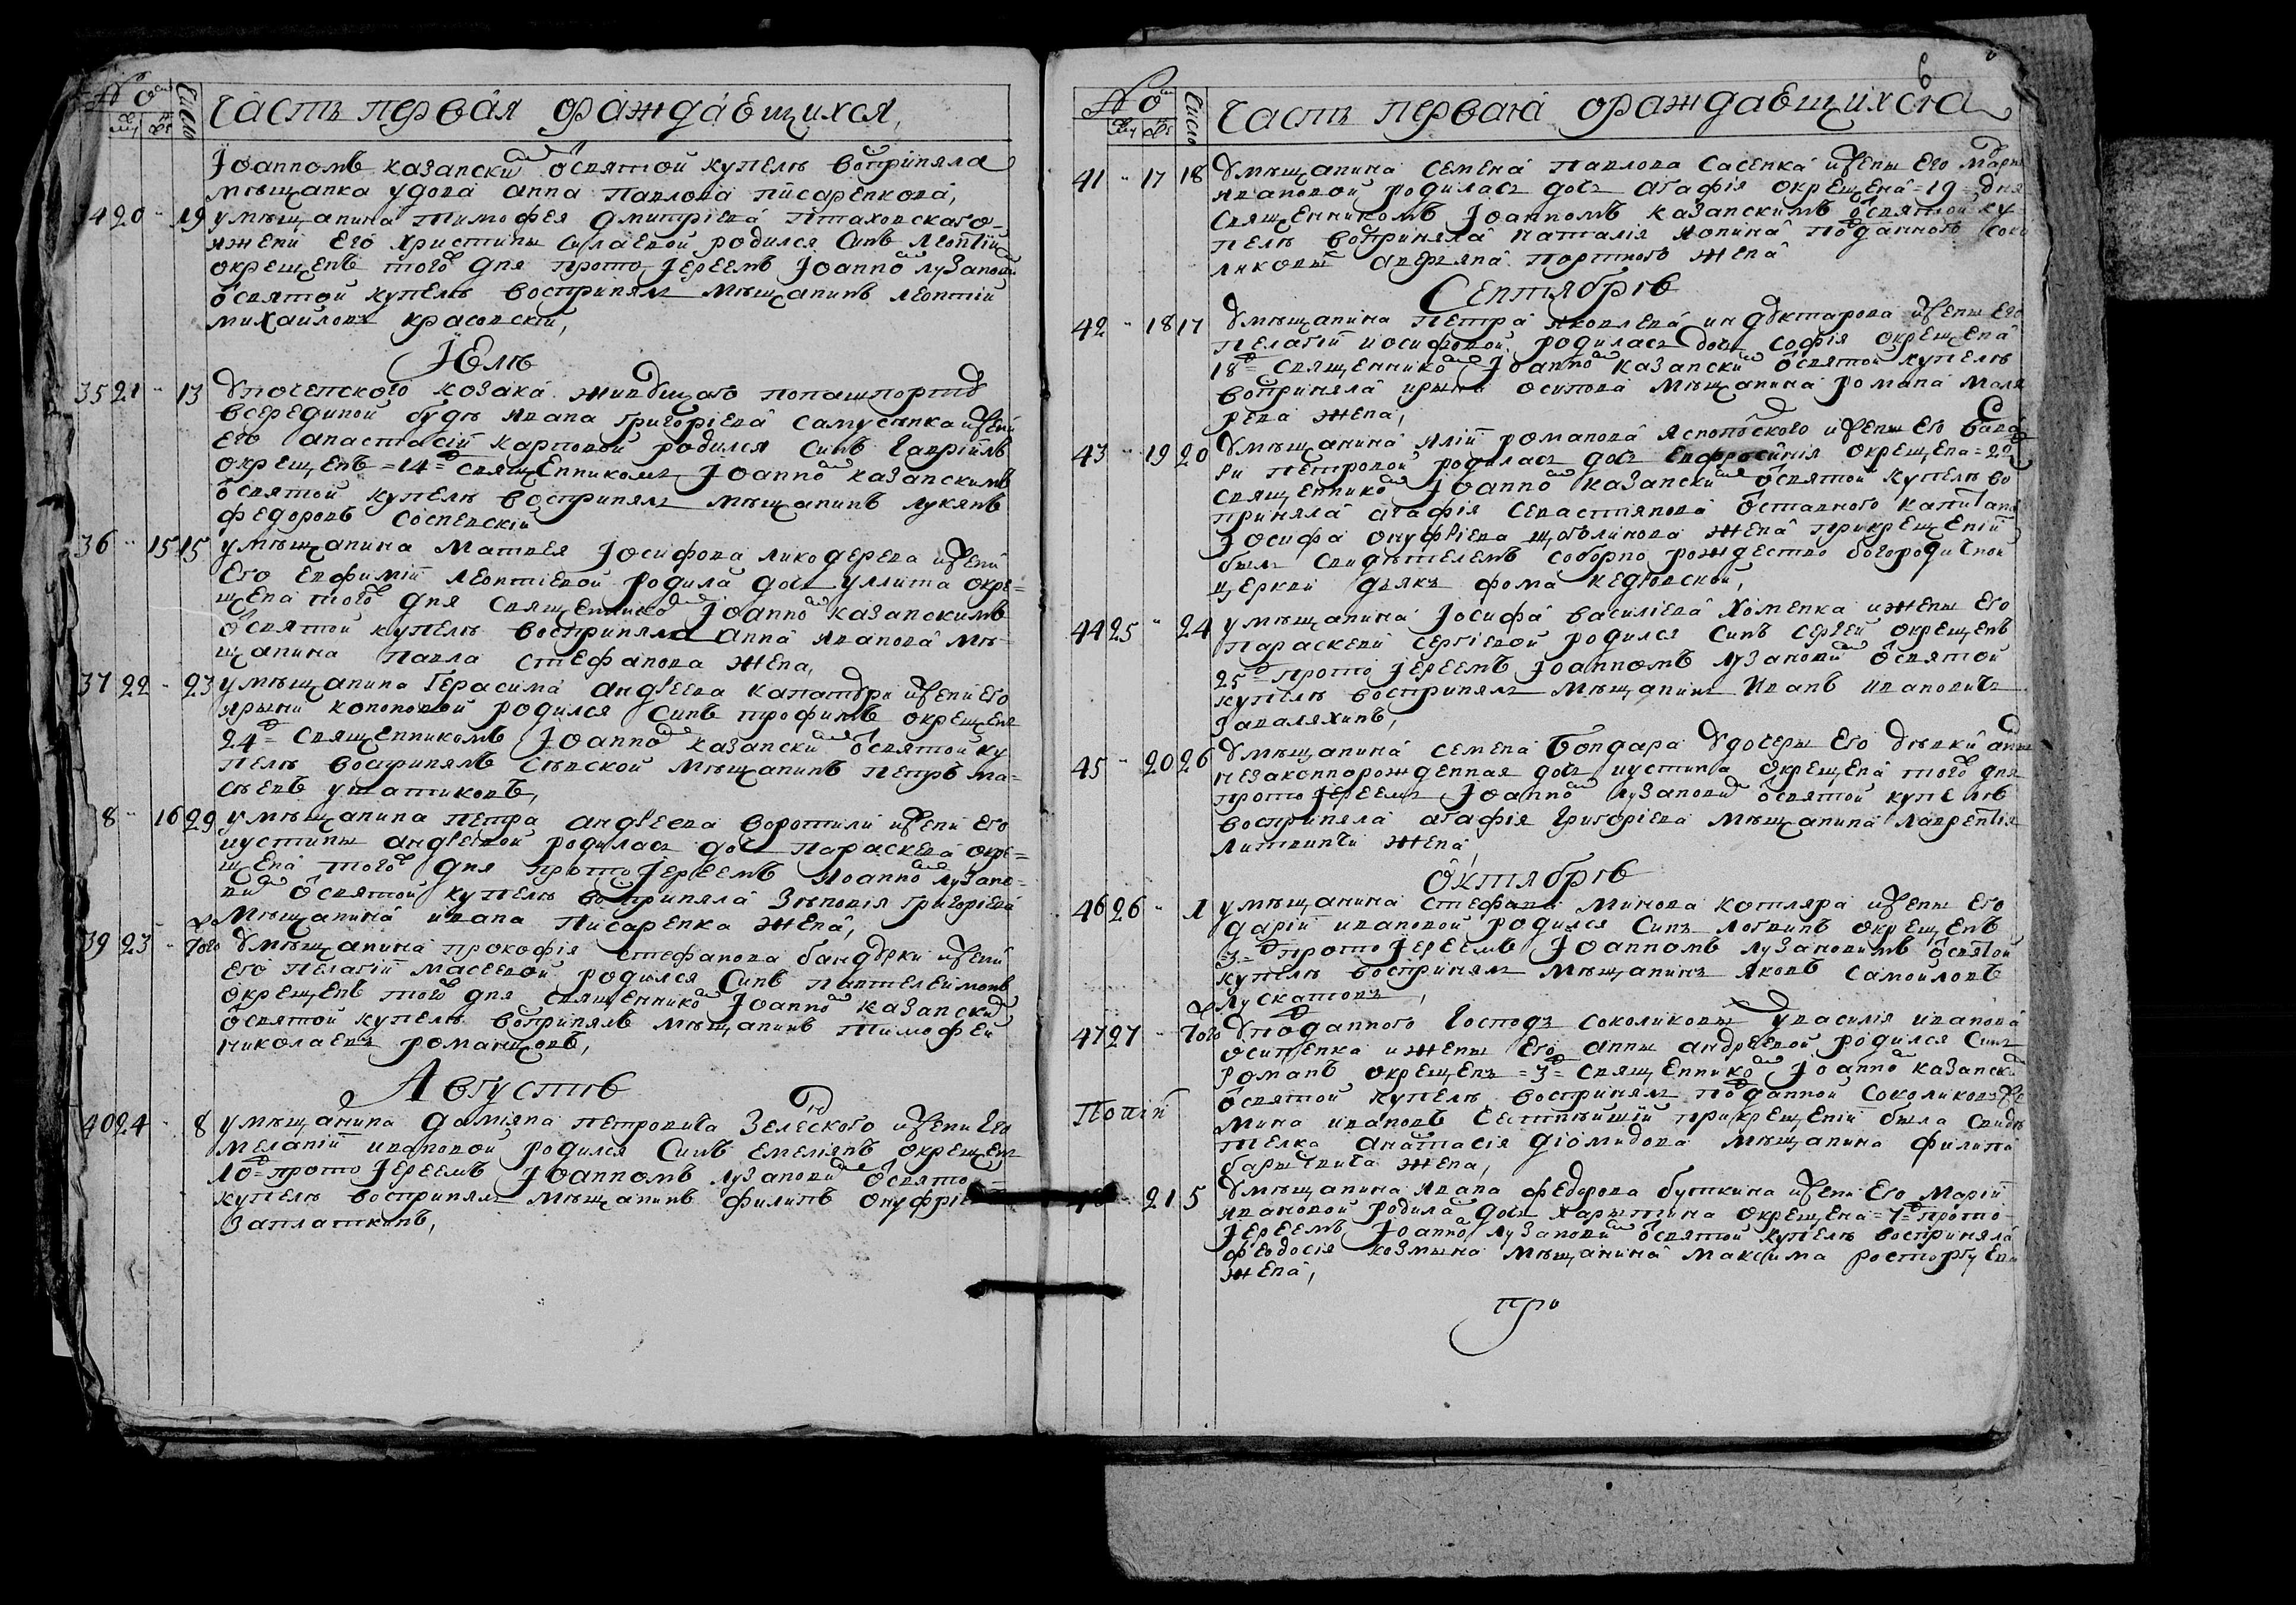 № Число Часть первая ораждаещихся,
Iоанномъ казански освятой купелѣ воприняла
мѣщанка удова анна Павлова писаренкова,
34 20 " 19 умѣщанина тимофея дмитрiева Птаховскаго
ижени Его христины силаевой родился Синъ Леонтiй
окрещенъ того дня протоIереемъ Iоанно лузанови
освятой купелѣ восприняла мѣщанинъ леонтiй
михаиловъ красовскiй,
Юль
35 21 " 13 Упочепского козака живущаго попашпорту
всерединой будѣ Ивана григорiева самусенка иЖени
Его анастасiй карповой родился Синъ гаврiилъ
окрещенъ =14= священникомъ Iоанно казанскимъ
освятой купелѣ воспринялъ мѣщанинъ лукянъ
федоровъ сосневскiй
36 " 15 15 умѣщанина Матвея Iосифова ликодерева иЖени
Его евфимiй леонтiевой родила дочь уллита окре=
щена того дня священнико Iоанно казанскимъ
освятой купелѣ восприняла анна иванова мѣ-
щанина павла стефанова жена,
37 22 " 23 умѣщанина Герасима андрѣева капатури иЖени Его
ирыни кононовой родился Синъ трофимъ окрещенъ
24= Священникомъ Iоанно казански освятой ку
пелѣ воспринялъ сѣвской мѣщанинъ петръ ма-
сѣевъ ушатиковъ,
8 " 16 29 умѣщанина петра андрѣева воротили иЖени Его
иустины андрѣевой родилась доч параскева окре=
щена того дня протоIереемъ Иоанно лузано=
ви освятой купелѣ воприняла Зѣновiя григорiева
мѣщанина ивана Писаренка жена,
39 23 " Того Умѣщанина прокофiя стефанова бандурки иЖени
Его пелагiй масеевой родился Синъ пантелеймонъ
окрещенъ того дня священнико Iоанно казански
освятой купелѣ вопринялъ мѣщанинъ тимофей
николаевъ романцовъ,
Августъ
40 24 " 8 умѣщанина дамiяна петровича Зелеского иЖени Его
меланiй ивановой родился Синъ емелянъ окрещен
10= протоIереемъ Iоанномъ лузанови освято
купелѣ воспринялъ мѣщанинъ филипъ онуфрiе
Заплаткинъ,
6
№ Число Часть первая ораждаещихся
41 " 17 18 Умѣщанина семена павлова сасенка иЖены Его мары
ивановой родилась дочь агафiя окрещена =19= дня
священникомъ Iоанномъ казанскимъ освятой ку
пелѣ воприняла наталiя ионина поданного соко
ликовы портного жена
Сентябрѣ
42 " 18 17 Умѣщанина петра яковлева индуктарова иЖены Его
пелагiй иосифовой родилась дочь софiя окрещена
18= Священнико Iоанно казански освятой купелѣ
воприняла ирына осипова мѣщанина романа маля
рева жена,
43 " 19 20 Умѣщанина илiй романова яснопольского иЖены Его варва
ри петровой родилась доч евфросинiя окрещена =22=
священнико Iоанно казански освятой купелѣ во
приняла агафiя севастiянова оставного капитана
Iосифа онуфрiева щоголинова жена прикрещенiй
былъ Свидѣтелемъ соборно рождество богородичной
церкви дьякъ фома кедровской,
44 25 " 24 умѣщанина Iосифа василiева хоменка ижены Его
параскевiй сергiевой родился Синъ сергѣй окрещенъ
25= протоIереемъ Iоанномъ лузанови освятой
купелѣ воспринялъ мѣщанинъ Иванъ ивановичъ
Заваляхинъ,
45 " 20 26 Умѣщанина семена бондара Удочеры Его дѣвки анны
незаконнорожденная дочь иустина окрещена того дня
протоIереемъ Iоанно лузанови освятой купелѣ
восприняла агафiя григорiева мѣщанина лаврентiя
литвинчи жена,
Октябрѣ
46 26 " 1 умѣщанина стефана минова котляра иЖены Его
дарiй ивановой родился Синъ логвинъ окрещенъ
=3= протоIереемъ Iоанномъ лузановимъ освятой
купелѣ воспринялъ мѣщанинъ яковъ самойловъ
лускатовъ,
47 27 " Того Уподанного господъ соколиковы увасилiя иванова
осипенка ижены Его анны андрѣевой родился Синъ
романъ окрещенъ =3= священнико Iоанно казански
освятой купелѣ воспринялъ поданной соколиковы
мина ивановъ прикрещенiй была свидѣ
телка анатасiя дiомидова мѣщанина филипа
жена,
21 5 Умѣщанина ивана федорова буткина иЖени Его Марiй
ивановой родила дочь харытина окрещена =7= прото
Iереемъ Iоанно лузанови освятой купелѣ восприняла
феодосiя козмына мѣщанина максима расторгуева
жена,
про